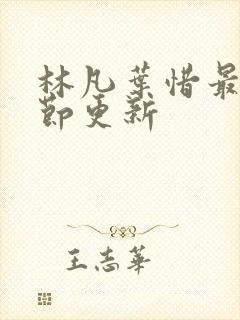 林凡葉惜最
節更新
王志華